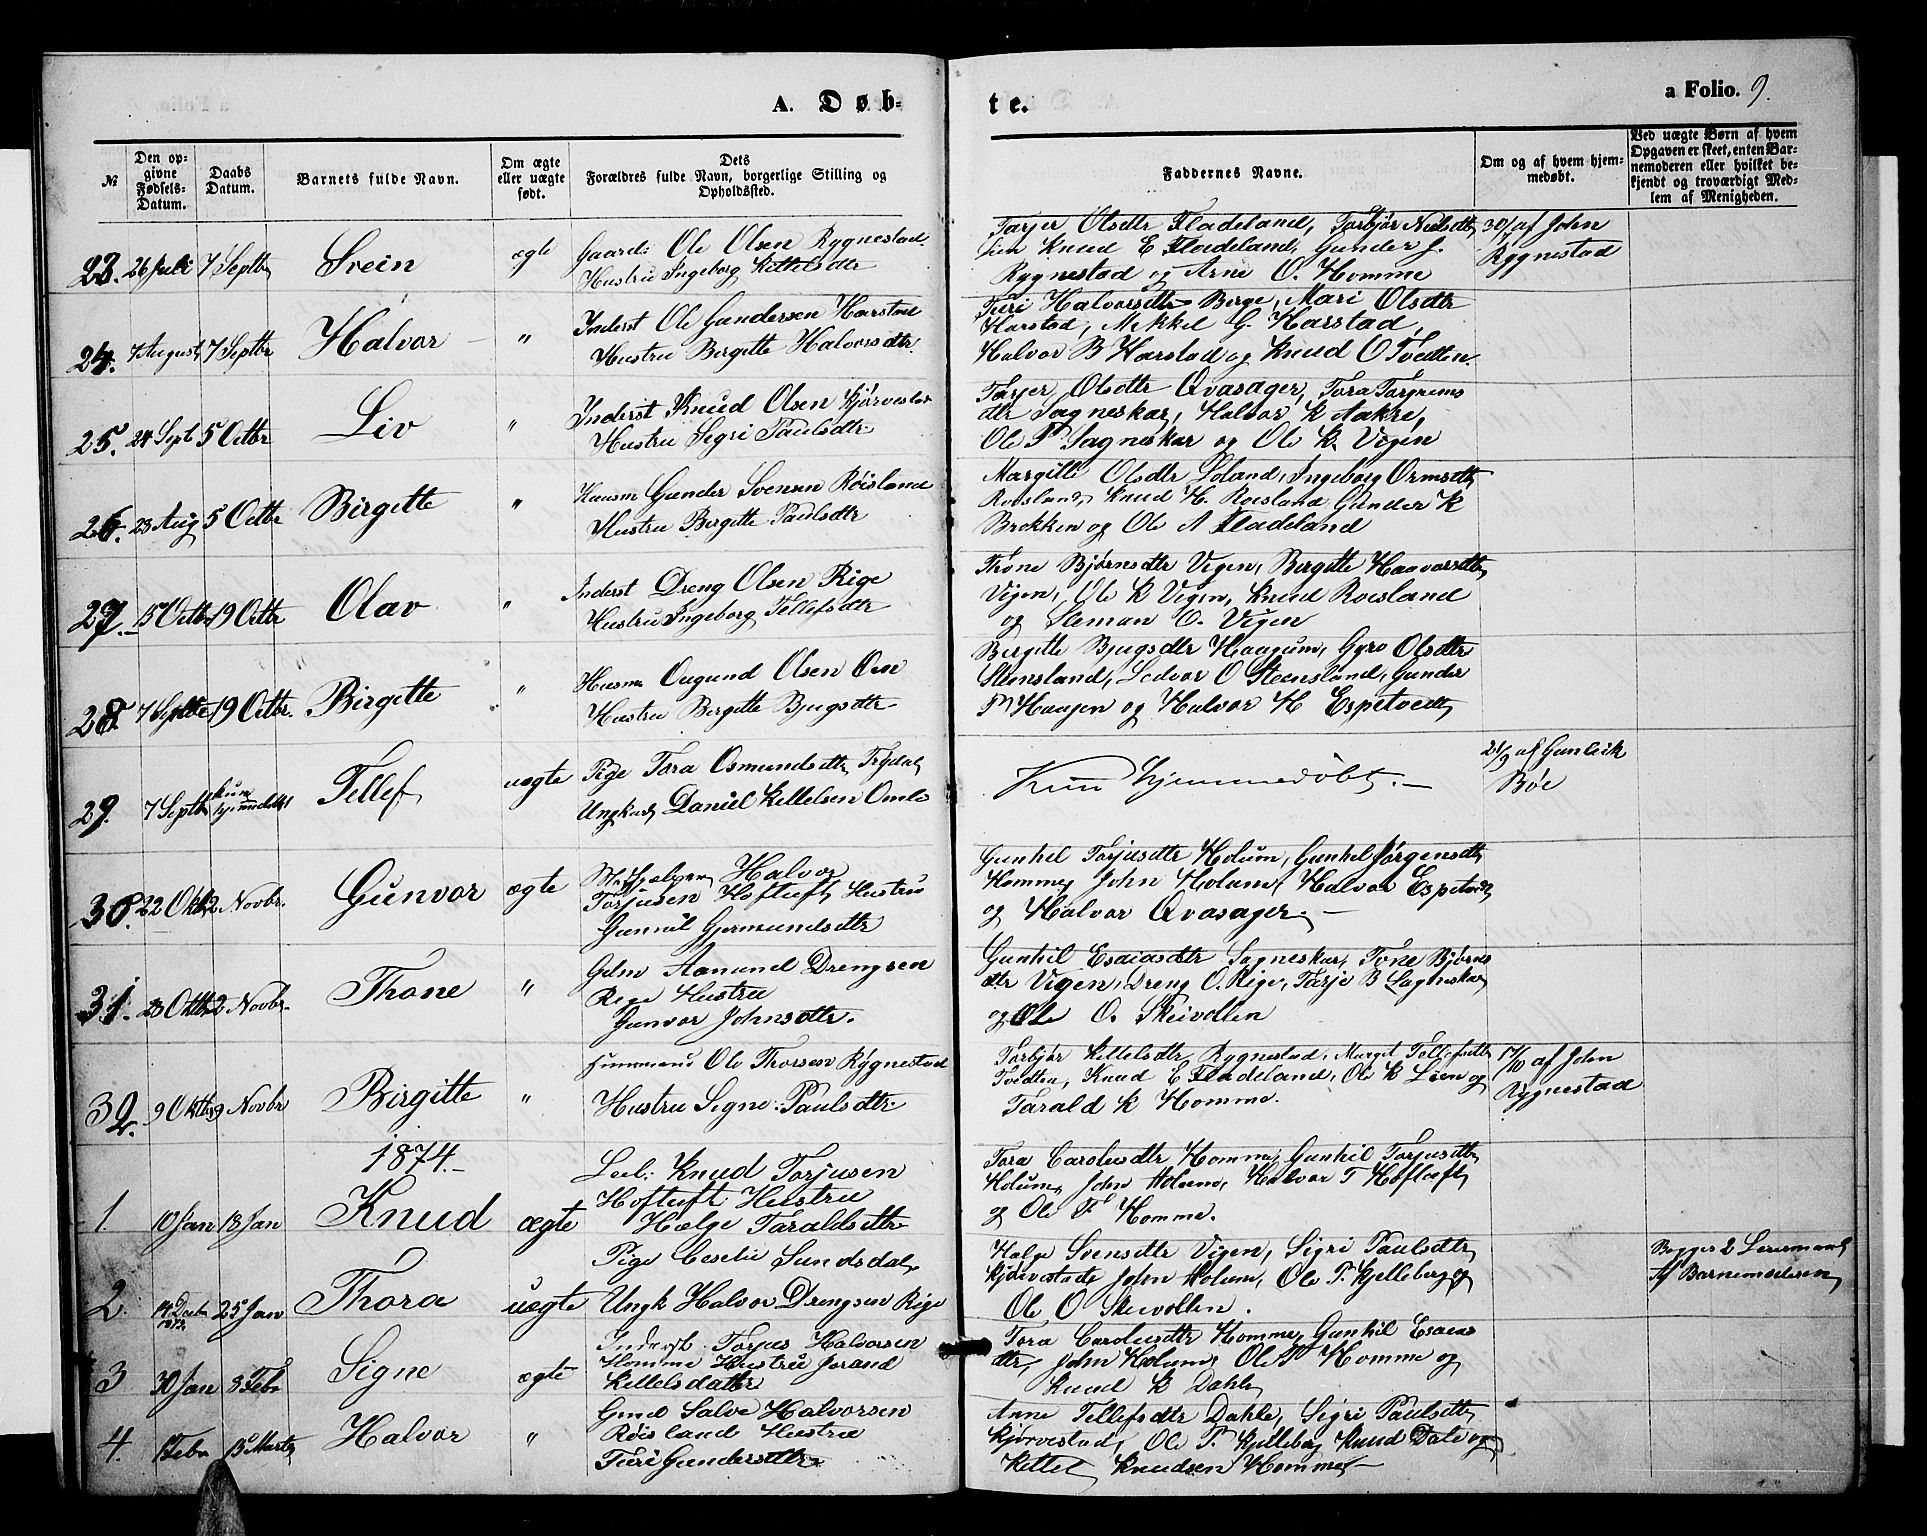 A. Døb-
te.
a Folio. 9.
№
Den opgivne Fødsels-Datum.
Daabs Datum.
Barnets fulde Navn.
Om ægte eller uægte født.
Dets Forældres fulde Navn, borgerlige Stilling og Opholdssted.
Faddernes Navne.
Om og af hvem hjemmedøbt.
Ved uægte Børn af hvem Opgaven er skeet, enten Barnemoderen eller hvilket bekjendt og troværdigt Medlem af Menigheden.
23. 26 Juli 7 Septbr Svein ægte
Gaard: Ole Olsen Rygnestad
Hustru Ingeborg Kittelsdtr
Tarjer Olsdtr Fladeland, Torbjør Nielsdtr
Lien Knud E Fladeland, Gunder J.
Rygnestad og Arne O. Homme
30/7 af John
Rygnestad
24. 7 August 7 Septbr Halvor "
Inderst Ole Gundersen Harstad
Hustru Birgitte Halvorsdtr
Turi Halvorsdtr Berge, Mari Olsdtr
Harstad, Mikkel G. Harstad,
Halvor B Harstad og Knud O Tvedten.
25. 24 Sept 5 Octbr Liv "
Inderst Knud Olsen Kjørvestad
Hustru Sigri Paulsdtr
Tarjer Olsdtr Qvasager, Tora Targrims
dtr Sagneskar, Halvor K Aakre,
Ole P Sagneskar og Ole K. Vigen
26. 23 Aug 5 Octbr Birgitte "
Husm Gunder Svensen Røisland
Hustru Birgitte Paulsdtr
Margitte Olsdtr Loland, Ingeborg Ormsdtr
Røisland, Knud H. Røisland Gunder K
Brokken og Ole A Fladeland
27. 15 Octbr 19 Octbr Olav "
Inderst Dreng Olsen Rige
Hustru Ingeborg Tellefsdtr
Thone Bjørnsdtr Vigen, Birgitte Haavorsdtr
Vigen, Ole K Vigen, Knud Roisland
og Sleman O. Vigen
28. 7 Septbr 19 Octbr. Birgitte "
Husm Ougund Olsen Øen
Hustru Birgitte Bjugsdtr
Birgitte Bjugsdtr Haugum, Gyro Olsdtr
Stensland, Ledvor O Steensland, Gunder
P Haugen og Halvor H Espetvedt
29. 7 Septbr kun hjemmedøbt Tellef uægte
Pige Tora Osmundsdtr Trydal
Ungkarl Daniel Kittelsen Omle
Kun hjemmedøbt.
21/9 af Gunleik
Bøe
30. 22 Oktbr 2 Novbr. Gunvor ægte
Halvor
Torjusen Hoftuft Hustru
Gunnil Gjermundsdtr
Gunhil Torjusdtr Holum, Gunhil Jørgensdtr
Homme, John Holum, Halvor Espetvedt
og Halvor Qvasager.
31. 23 Oktbr 2 Novbr. Thone "
Gdm Aanund Drengsen
Rige Hustru
Gunvor Johnsdtr.
Gunhil Esaiasdtr Sagneskar, Tone Bjørns
dtr Vigen, Dreng O. Rige, Tarje B Sagneskar
og Ole O. Skeivollen
32. 9 Oktbr 9 Novbr Birgitte "
Huusmand Ole Thorsen Rygnestad
Hustru Signe Paulsdtr.
Torbjør Kittelsdtr Rygnestad, Margit Tellefsdtr
Tvedten, Knud E Fladeland, Ole K Lien og
Tarald K Homme.
17/10 af John
Rygnestad
1874.
1. 10 Jan 18 Jan Knud ægte
Leil: Knud Torjusen
Hoftuft Hustru
Hælge Taraldsdtr
Tora Carolusdtr Homme, Gunhil Torjusdtr
Holum, John Holum, Halvor T Hoftuft
og Ole F Homme.
2. 14 Decbr 1873. 25 Jan Thora uægte
Pige Ceselie Sundsdal,
Ungk Halvor Drengsen Rige
Halge Svensdtr Vigen, Sigri Paulsdtr
Kjørvestad, John Holum, Ole P. Kjelleberg og
Ole O Skeivollen.
Begges 2 Leiermaal
Af Barnemoderen
3 30 Jan 8 Febr Signe ægte
Inderst Torjus Halvorsen
Homme Hustru Jorand
Kittelsdatter
Tora Carolusdtr Homme, Gunhil Esaias
dtr, John Holum, Ole P Homme og
Knud K Dahle
4. Febr 15 Marts Halvor "
Gmd Salve Halvorsen
Røisland Hustru
Turi Gundersdtr
Anne Tellefsdtr Dahle, Sigri Paulsdtr
Kjørvestad, Ole P. Kjelleberg Knud Dale og
Kittel Knudsen Homme